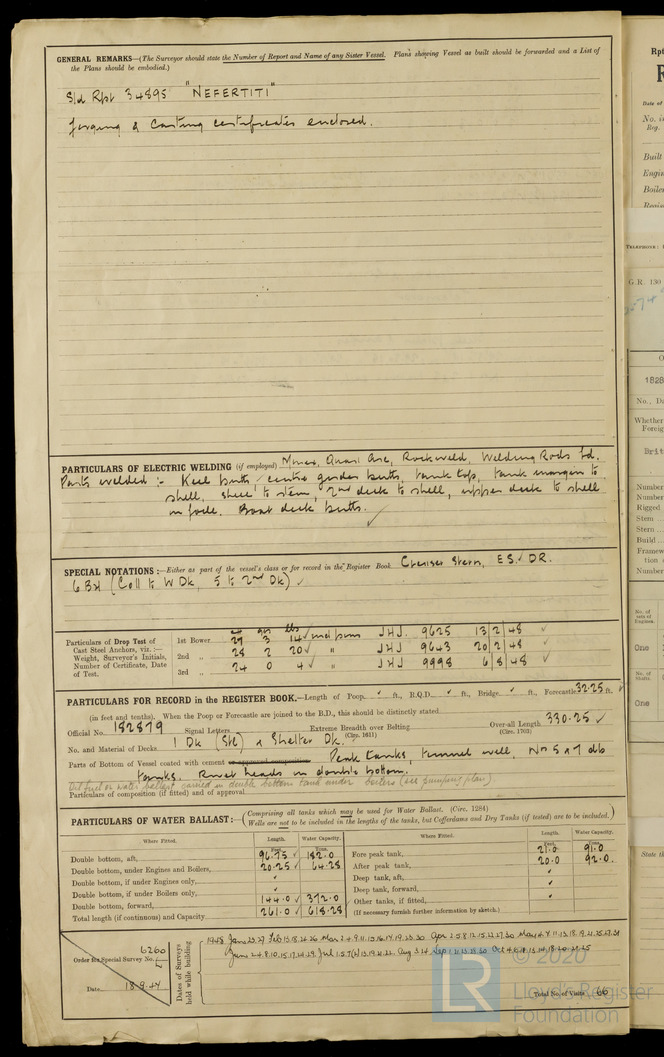 GENERAL REMARKS—(The Surveyor should state the Number of Report and Name of any Sister Vessel. Plans showing Vessel as built should be forwarded and a List of
the Plans should be embodied.)
Sld Rpt 34895 "NEFERTITI"
Forging & Casting certificates enclosed.
PARTICULARS OF ELECTRIC WELDING (if employed) Murex, Quasi Arc, Rockweld, Welding Rods Ltd.
Parts welded :- Keel butts, centre girder butts, tank top, tank margin to
shell, shell to stem, 2nd deck to shell, upper deck to shell
in fo'cle, Boat deck butts.
SPECIAL NOTATIONS:—Either as part of the vessel's class or for record in the Register Book. Cruiser Stern, ESD. DR.
6 BH (Coll to W Dk, 5 to 2nd Dk)
Particulars of Drop Test of
Cast Steel Anchors, viz. :—
Weight, Surveyor's Initials,
Number of Certificate, Date
of Test.
cwt qrs lbs
1st Bower 29 3 14 JHJ. 9625 13/2/48
2nd „ 28 2 20 " JHJ. 9643 20/2/48
3rd „ 24 0 4 " JHJ 9998 6/8/48
PARTICULARS FOR RECORD in the REGISTER BOOK.—Length of Poop, ft., R.Q.D. ft., Bridge, ft., Forecastle 32.25 ft.
(in feet and tenths). When the Poop or Forecastle are joined to the B.D., this should be distinctly stated
Official No. 182879 Signal Letters Extreme Breadth over Belting (Circ. 1611) Over-all Length (Circ. 1703) 330.25
No. and Material of Decks 1 Dk (Stl) & Shelter Dk.
Parts of Bottom of Vessel coated with cement or approved composition Peak tanks, tunnel well, Nos 5 & 7 db
tanks. Rivet heads in double bottom.
Oil fuel or water ballast carried in double bottom tank under boilers (see pumping plan).
Particulars of composition (if fitted) and of approval
PARTICULARS OF WATER BALLAST:— (Comprising all tanks which may be used for Water Ballast. (Circ. 1284)
Wells are not to be included in the lengths of the tanks, but Cofferdams and Dry Tanks (if tested) are to be included.)
Where Fitted. Length. Water Capacity.
Feet. Tons.
Double bottom, aft, 96.75 182.0
Double bottom, under Engines and Boilers, 20.25 64.28
Double bottom, if under Engines only,
Double bottom, if under Boilers only,
Double bottom, forward, 144.0 372.0
Total length (if continuous) and Capacity 261.0 618.28
Where Fitted. Length. Water Capacity.
Fore peak tank, 21.0 91.0
After peak tank, 20.0 92.0
Deep tank, aft,
Deep tank, forward,
Other tanks, if fitted,
(If necessary furnish further information by sketch.)
Order for Special Survey No. 6260
Date 18.9.44
Dates of Surveys
held while building
Total No. of Visits 66
© 2020
LR
Lloyd's Register
Foundation
Date of
Built
TELEPHONE:
G.R. 130
1828
No., Da
Whether
Foreig
Brit
Number
Number
Rigged
Stem
Stern
Build
Framew
tion
Number
One
One
State th